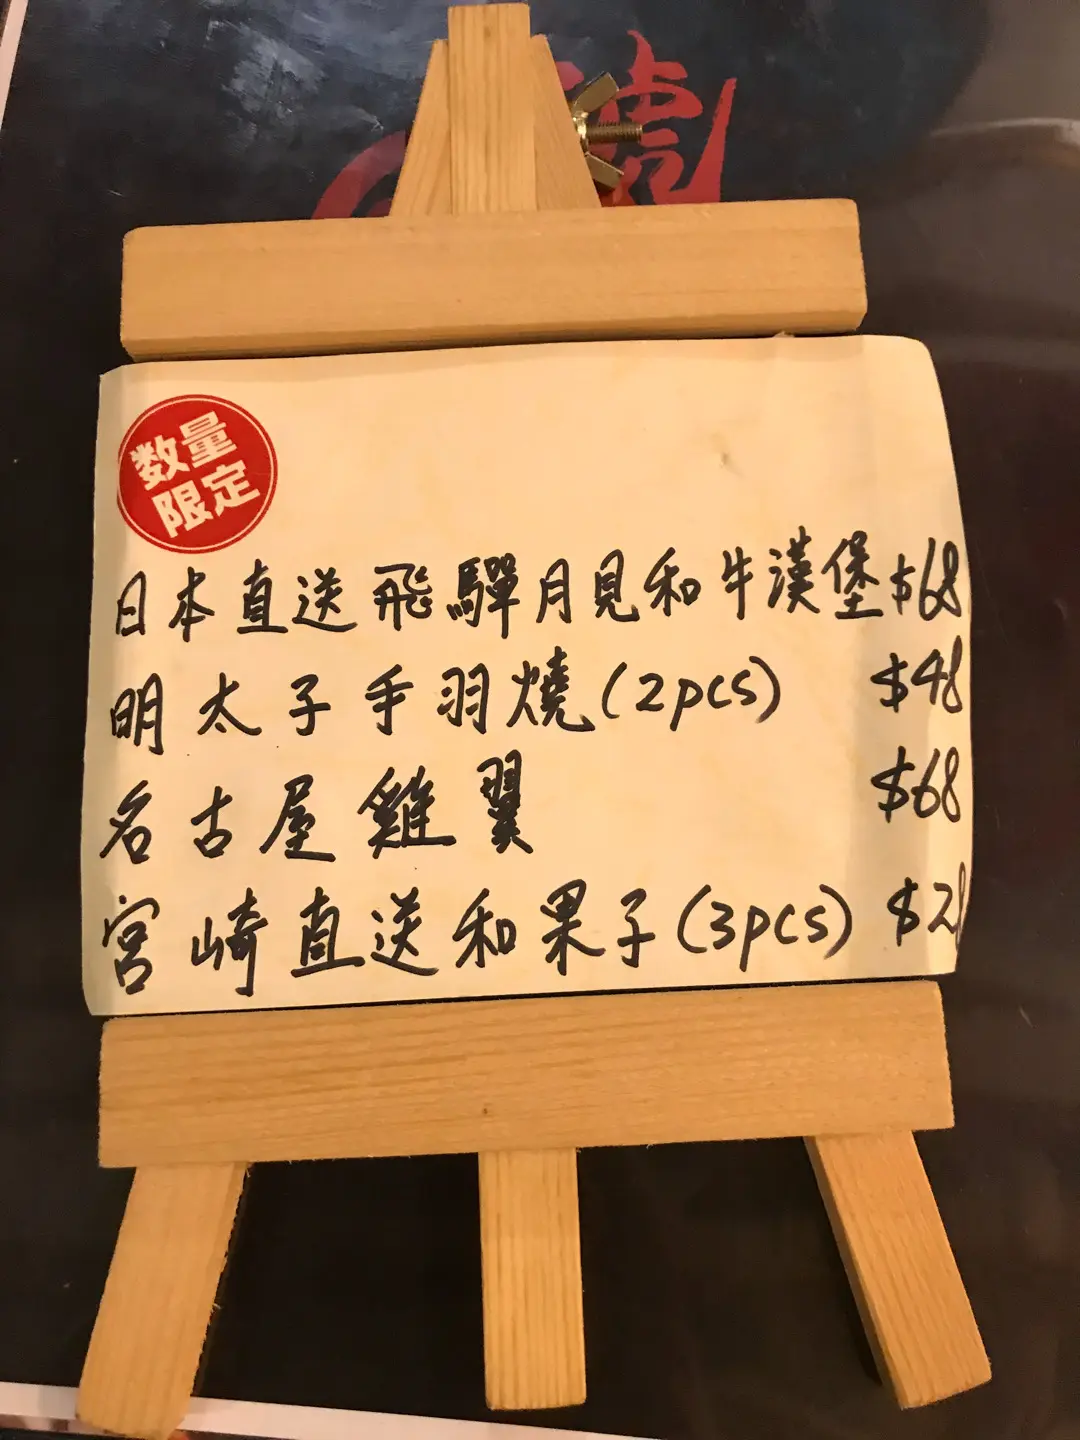 数量
限定
日本直送飛驒月見和牛漢堡$68
明太子手羽燒(2pcs) $48
名古屋雞翼 $68
宮崎直送和果子(3pcs) $28